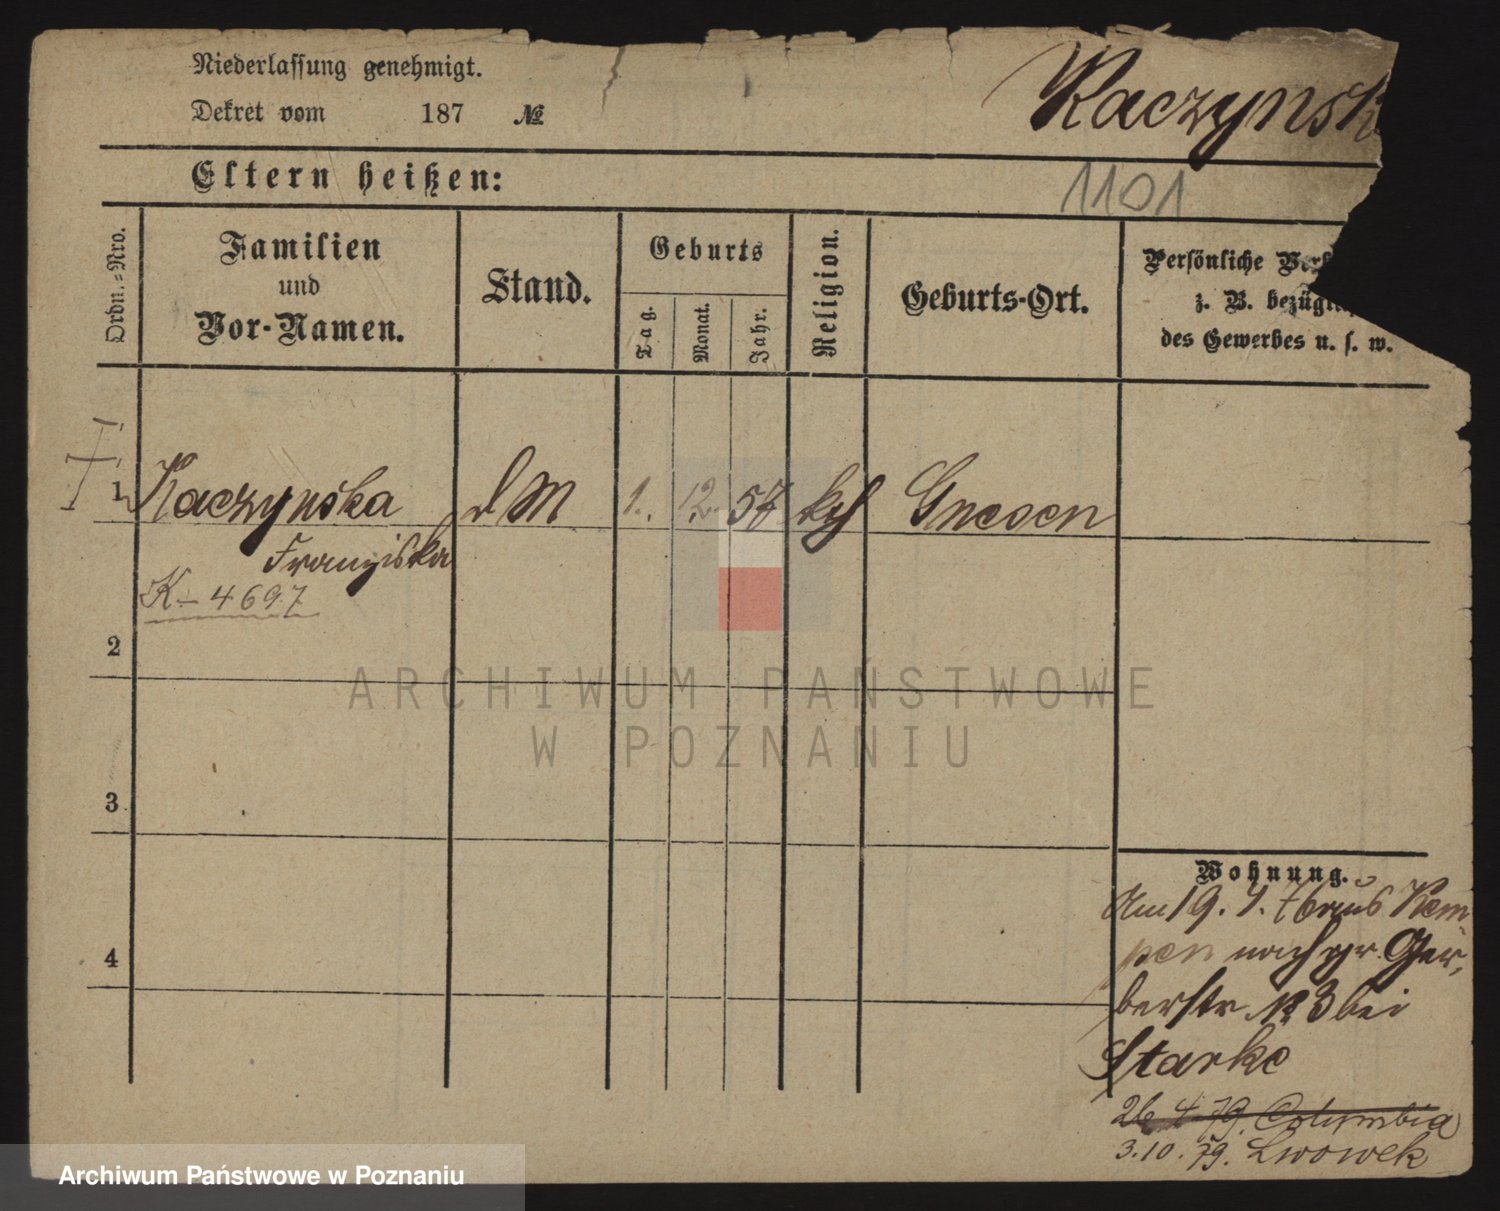 Niederlassung genehmigt.
Kaczynsk
Dekret vom 187 №
Eltern heißen:
1101
Ordn.-Nro.
Familien
und
Vor-Namen.
Stand.
Geburts
Tag.
Monat.
Jahr.
Religion.
Geburts-Ort.
Persönliche
z. B.
des Gewerbes u. s. w.
1 Kaczynska d M 1. 12. 57 kth Gnesen
Franziska
K- 4697
2
3
4
Wohnung.
Am 19. 4. 76 aus Kem
pen nach gr. Ger,
berstr. № 3 bei
Starke
26 4 79. Columbia
3.10.79. Lwowek
ARCHIWUM PAŃSTWOWE
W POZNANIU
Archiwum Państwowe w Poznaniu